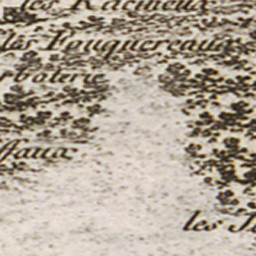 les Racineux
les Fouquereaux
rboterie
ffaux
les J